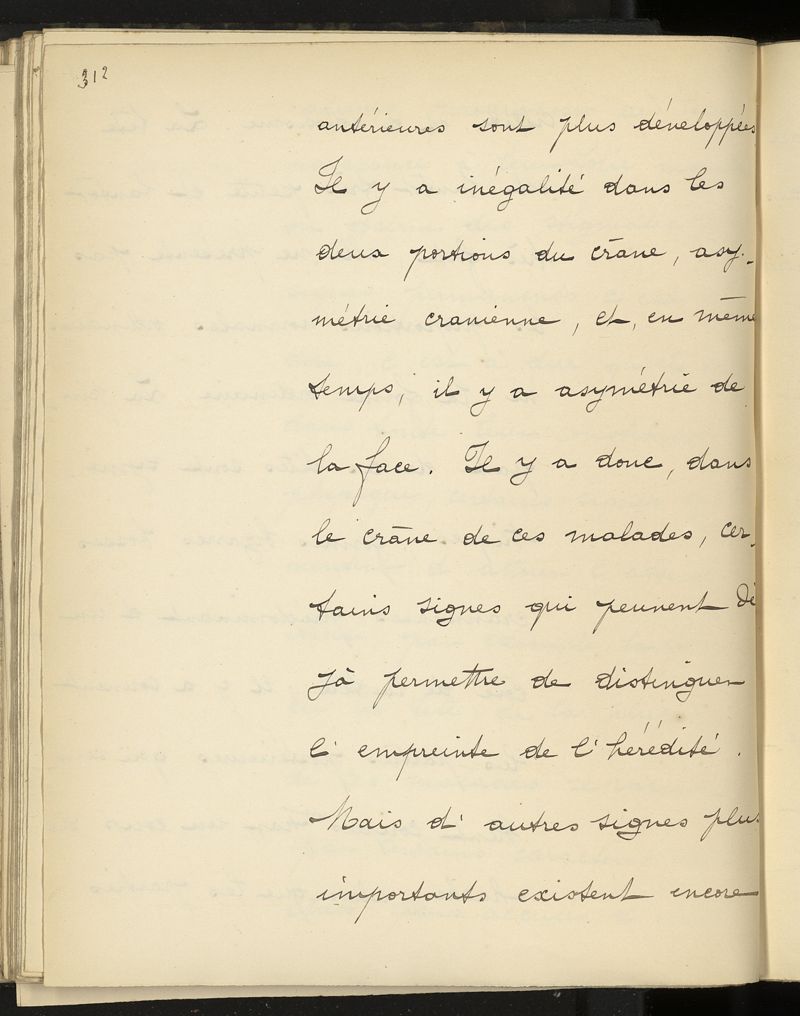 312
antérieures sont plus développées
Il y a inégalité dans les
deux portions du crâne, asy-
métrie cranienne, et, en même
temps, il y a asymétrie de
la face. Il y a donc, dans
le crâne de ces malades, cer-
tains signes qui peuvent dé
jà permettre de distinguer
l'empreinte de l'hérédité.
Mais d'autres signes plus
importants existent encore